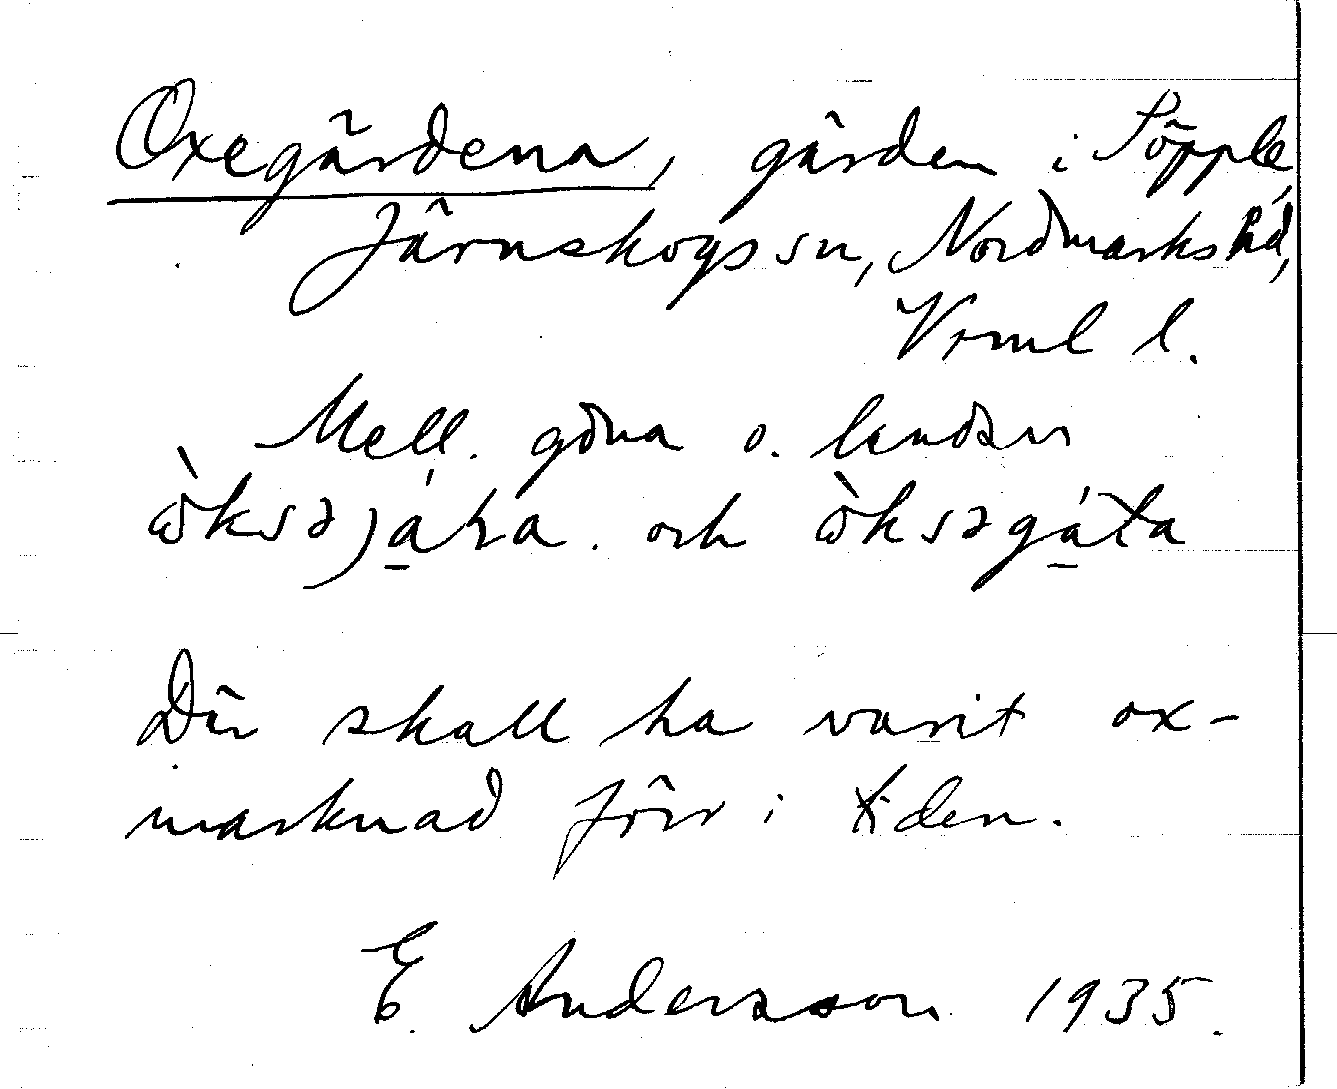 Oxegärdena, gärden i Söpple,
Järnskogs sn, Nordmarks hd,
Vrml l.
Mell. gdna o. landsv
ὼksəjára. och ὼksəgáta
Där skall ha varit ox-
marknad förr i tiden.
E. Andersson 1935.